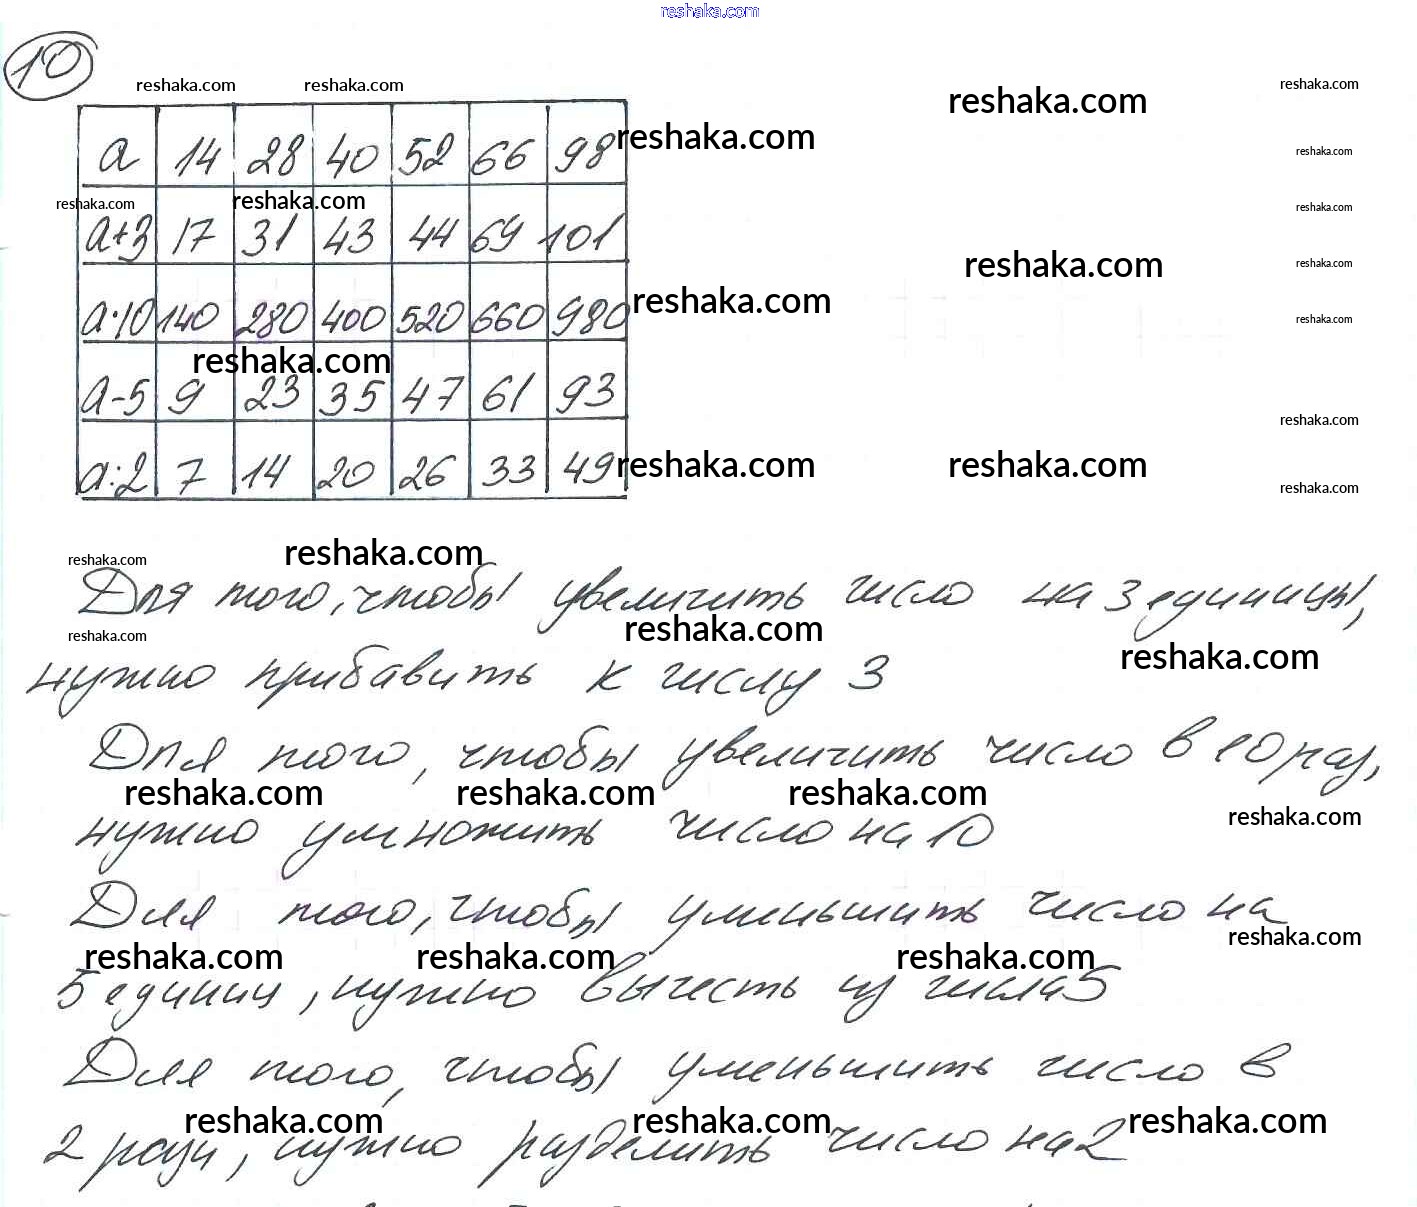 reshaka.com
10
reshaka.com reshaka.com
reshaka.com reshaka.com
а 14 28 40 52 66 98 reshaka.com
reshaka.com
reshaka.com reshaka.com reshaka.com
а+3 17 31 43 44 69 101
reshaka.com reshaka.com
reshaka.com
а·10 140 280 400 520 660 980 reshaka.com
reshaka.com
а-5 9 23 35 47 61 93
reshaka.com
а:2 7 14 20 26 33 49 reshaka.com reshaka.com
reshaka.com
reshaka.com reshaka.com
Для того, чтобы увеличить число на 3 единицы,
reshaka.com reshaka.com
reshaka.com
нужно прибавить к числу 3
Для того, чтобы увеличить число в 10 раз,
reshaka.com reshaka.com reshaka.com
reshaka.com
нужно умножить число на 10
Для того, чтобы уменьшить число на
reshaka.com
reshaka.com reshaka.com reshaka.com
5 единиц, нужно вычесть из числа 5
Для того, чтобы уменьшить число в
reshaka.com reshaka.com reshaka.com
2 раза, нужно разделить число на 2